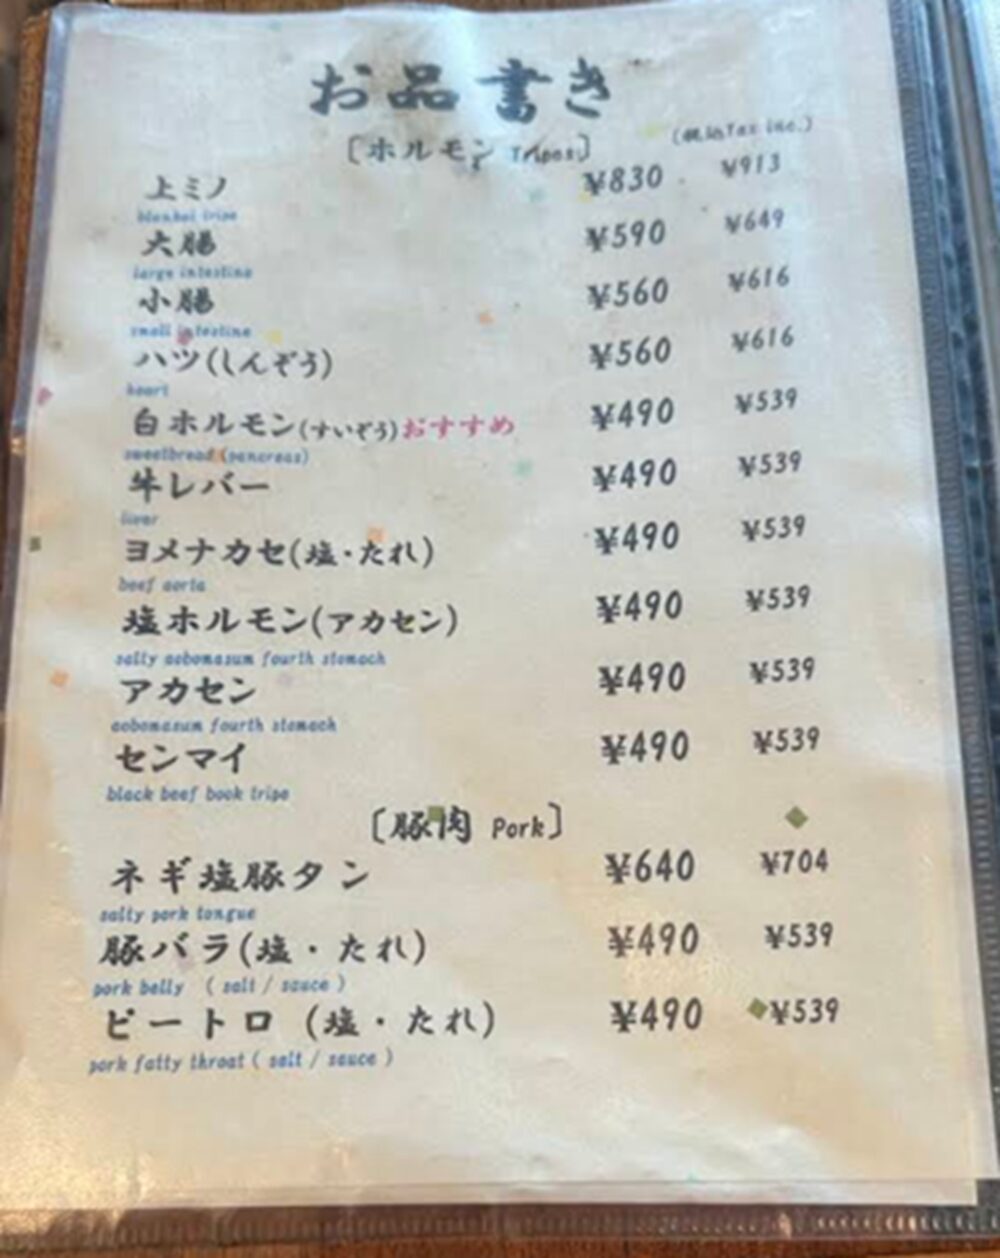 お品書き
〔ホルモン Tripes〕 (税込Tax inc.)
上ミノ ¥830 ¥913
blanket tripe
大腸 ¥590 ¥649
large intestine
小腸 ¥560 ¥616
small intestine
ハツ(しんぞう) ¥560 ¥616
heart
白ホルモン(すいぞう)おすすめ ¥490 ¥539
sweetbread (pancreas)
牛レバー ¥490 ¥539
liver
ヨメナカセ(塩・たれ) ¥490 ¥539
beef aorta
塩ホルモン(アカセン) ¥490 ¥539
salty aobomasum fourth stomach
アカセン ¥490 ¥539
aobomasum fourth stomach
センマイ ¥490 ¥539
black beef book tripe
〔豚肉 Pork〕
ネギ塩豚タン ¥640 ¥704
salty pork tongue
豚バラ(塩・たれ) ¥490 ¥539
pork belly ( salt / sauce )
ピートロ (塩・たれ) ¥490 ¥539
pork fatty throat ( salt / sauce )